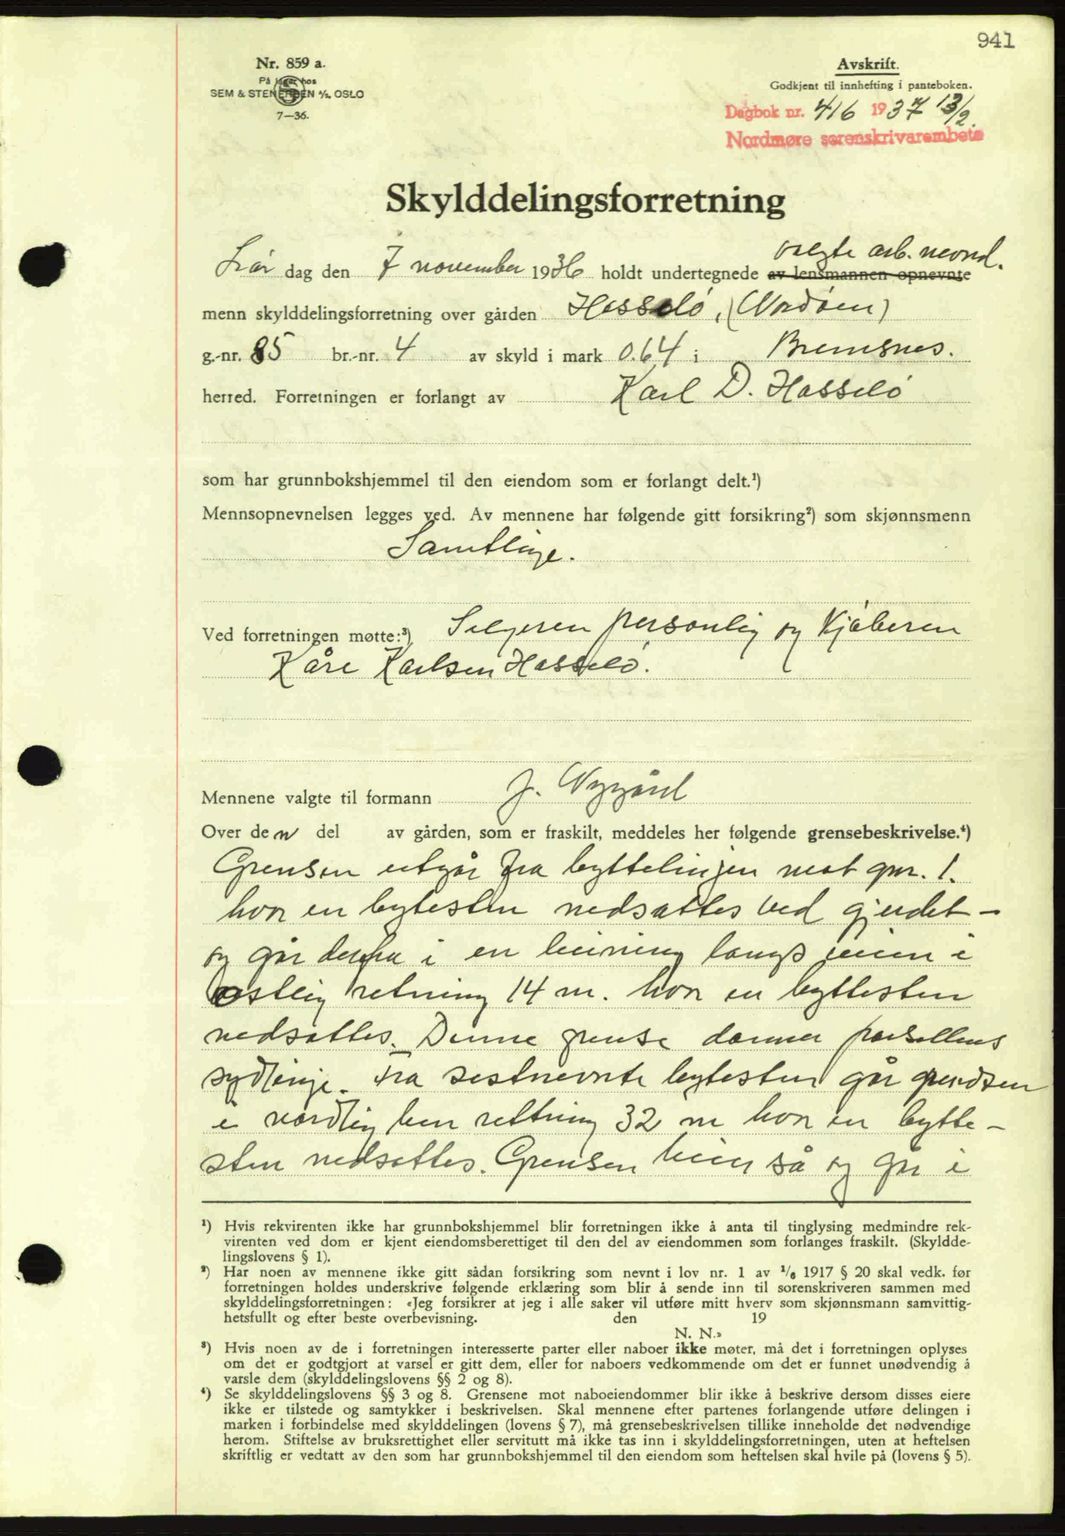 941
Nr. 859 a.
På lager hos
SEM & STENERSEN A/S. OSLO
7—36.
Avskrift.
Godkjent til innhefting i panteboken.
Dagbok nr. 416 1937 13/2.
Nordmøre sorenskrivarembete
Skylddelingsforretning
valgte arb. nevnd.
Lør dag den 7 november 1936 holdt undertegnede av lensmannen opnevnte
menn skylddelingsforretning over gården Hasselø, (Nordøen)
g.-nr. 85 br.-nr. 4 av skyld i mark 0.64 i Bremsnes.
herred. Forretningen er forlangt av Karl D. Hasselø
som har grunnbokshjemmel til den eiendom som er forlangt delt.¹)
Mennsopnevnelsen legges ved. Av mennene har følgende gitt forsikring²) som skjønnsmenn
Samtlige.
Ved forretningen møtte:³) Selgeren personlig og Kjøberen
Kåre Karlsen Hasselø.
Mennene valgte til formann J. Nygård
Over den del av gården, som er fraskilt, meddeles her følgende grensebeskrivelse.⁴)
Grensen utgår fra byttelinjen mot gnr. 1.
hvor en bytesten nedsattes ved gjerdet —
og går derfra i en beining langs veien i
østlig retning 14 m. hvor en byttesten
nedsattes. Denne grense danner parsellens
sydlinje. Fra sistnevnte bytesten går grendsen
i nordlig ben rettning 32 m hvor en bytte-
sten nedsattes. Grensen beier så og går i
¹) Hvis rekvirenten ikke har grunnbokshjemmel blir forretningen ikke å anta til tinglysing medmindre rek-
virenten ved dom er kjent eiendomsberettiget til den del av eiendommen som forlanges fraskilt. (Skyldde-
lingslovens § 1).
²) Har noen av mennene ikke gitt sådan forsikring som nevnt i lov nr. 1 av 1/6 1917 § 20 skal vedk. før
forretningen holdes underskrive følgende erklæring som blir å sende inn til sorenskriveren sammen med
skylddelingsforretningen: «Jeg forsikrer at jeg i alle saker vil utføre mitt hverv som skjønnsmann samvittig-
hetsfullt og efter beste overbevisning. den 19
N. N.»
³) Hvis noen av de i forretningen interesserte parter eller naboer ikke møter, må det i forretningen oplyses
om det er godtgjort at varsel er gitt dem, eller for naboers vedkommende om det er funnet unødvendig å
varsle dem (skylddelingslovens §§ 2 og 8).
⁴) Se skylddelingslovens §§ 3 og 8. Grensene mot naboeiendommer blir ikke å beskrive dersom disses eiere
ikke er tilstede og samtykker i beskrivelsen. Skal mennene efter partenes forlangende utføre delingen i
marken i forbindelse med skylddelingen (lovens § 7), må grensebeskrivelsen tillike inneholde det nødvendige
herom. Stiftelse av bruksrettighet eller servitutt må ikke tas inn i skylddelingsforretningen, uten at heftelsen
skriftlig er vedtatt av den som har grunnbokshjemmel til den eiendom som heftelsen skal hvile på (lovens § 5).